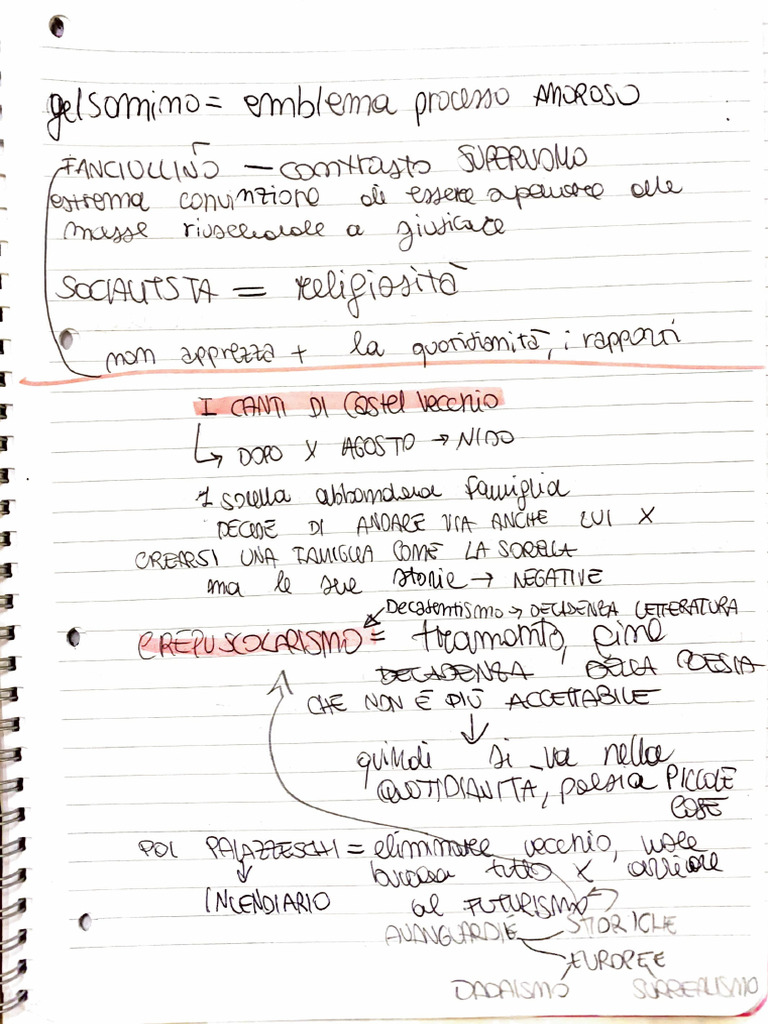 gelsomino = emblema processo AMOROSO
FANCIULLINO — contrasto SUPERUOMO
estrema convinzione di essere superiore alle
masse riuscendole a giudicare
SOCIALISTA = religiosità
non apprezza + la quotidianità, i rapporti
I CANTI DI Castel Vecchio
DOPO X AGOSTO → NIDO
1 sorella abbandona famiglia
DECIDE DI ANDARE VIA ANCHE LUI X
CREARSI UNA FAMIGLIA COME LA SORELLA
ma le sue storie → NEGATIVE
Decadentismo → DECADENZA LETTERATURA
CREPUSCOLARISMO = tramonto, fine
DECADENZA DELLA POESIA
CHE NON È PIÙ ACCETTABILE
quindi si va nella
QUOTIDIANITÀ, poesia PICCOLE
COSE
POI PALAZZESCHI = eliminare vecchio, vuole
bruciare tutto x arrivare
INCENDIARIO al FUTURISMO
AVANGUARDIE STORICHE
EUROPEE
DADAISMO SURREALISMO